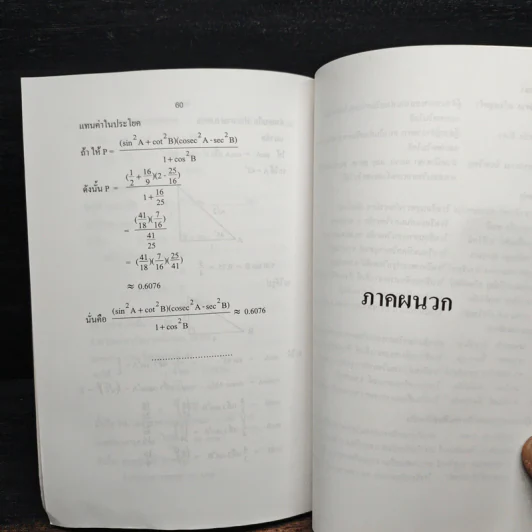 60
แทนค่าในประโยค
ถ้า ให้ P = (sin²A + cot²B)(cosec²A - sec²B) / 1 + cos²B
ดังนั้น P = (1/2 + 16/9)(2 - 25/16) / 1 + 16/25
= (41/18)(7/16) / 41/25
= (41/18)(7/16)(25/41)
≈ 0.6076
นั่นคือ (sin²A + cot²B)(cosec²A - sec²B) / 1 + cos²B ≈ 0.6076
..............................
ภาคผนวก